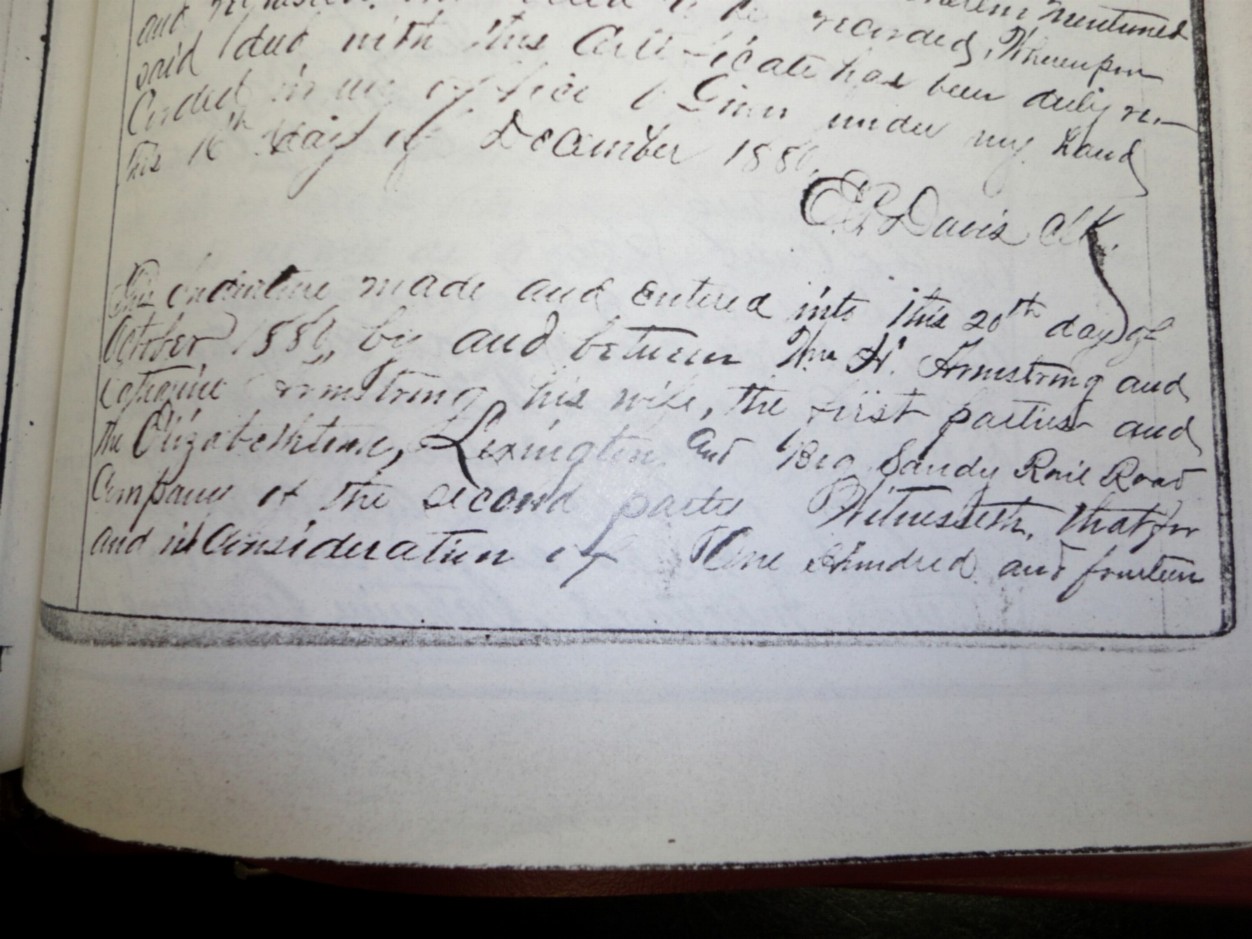 and mentioned
recorded, Whereupon
said deed with this Certificate has been duly re-
corded in my office. Given under my hand
this 16th day of December 188
E.P. Davis Clk.
This indenture made and entered into this 20th day of
October 188 by and between Wm H. Armstrong and
Catharine Armstrong his wife, the first parties and
the Elizabethtown, Lexington and Big Sandy Rail Road
Company of the second party Witnesseth, that for
and in Consideration of One Hundred and fourteen